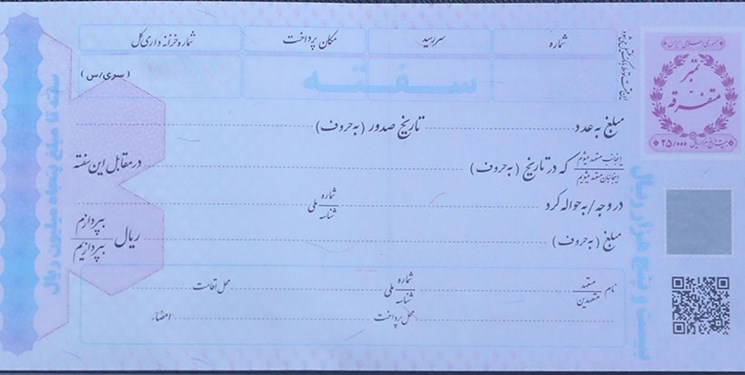 شماره
سررسید
مکان پرداخت
شماره خزانه داری کل
( سری/س )
سفته
مبلغ به عدد
تاریخ صدور ( به حروف )
اینجانب متعهد میشوم
اینجانبان متعهد میشویم
که در تاریخ ( به حروف )
در مقابل این سفته
در وجه / به حواله کرد
شماره
شناسه
ملی
مبلغ ( به حروف )
ریال
بپردازم
بپردازیم
نام
متعهد
متعهدین
شماره
شناسه
ملی
محل اقامت
محل پرداخت
امضاء
جمهوری اسلامی ایران
تمبر
متفرقه
۲۵/۰۰۰
بیست و پنج هزار ریال
سفته تا مبلغ پنجاه میلیون ریال